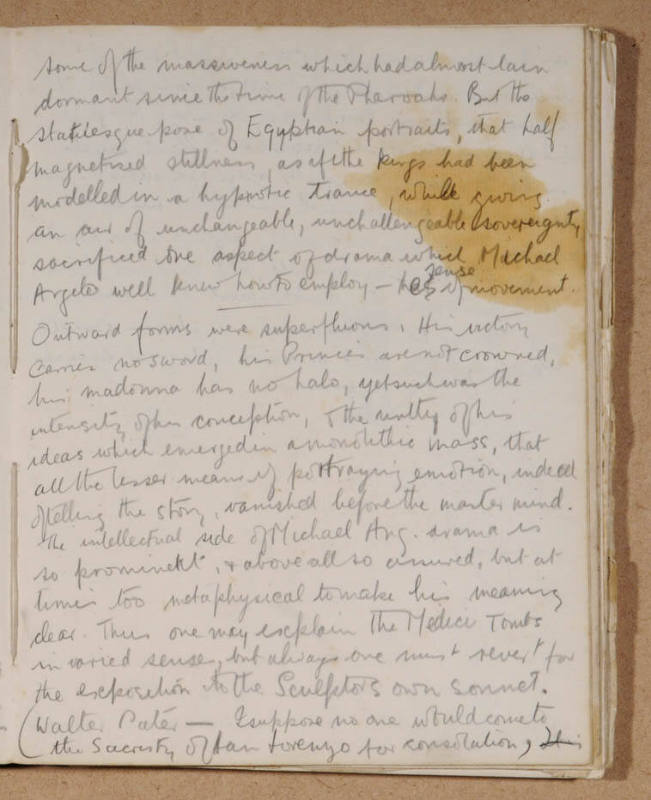 some of the massiveness which had almost lain
dormant since the time of the Pharoahs. But the
statuesque pose of Egyptian portraits, that half
magnetised stillness, as if the kings had been
modelled in a hypnotic trance, while giving
an air of unchangeable, unchallengeable sovereignty
sacrificed the aspect of drama which Michael
Angelo well knew how to employ – sense of movement.
Outward forms were superfluous. His victory
carries no sword, his Princes are not crowned,
his madonna has no halo, yet such was the
intensity of his conception, & the unity of his
ideas which emerged in a monolithic mass, that
all the lesser means of portraying emotion, indeed
of telling the story, vanished before the master mind.
The intellectual side of Michael Ang. drama is
so prominent, & above all so assured, but at
times too metaphysical to make his meaning
clear. Thus one may explain the Medici Tombs
in varied sense, but always one must revert for
the exposition to the Sculptors own sonnet.
(Walter Pater – I suppose no one would come to
the Sacristy of San Lorenzo for consolation,